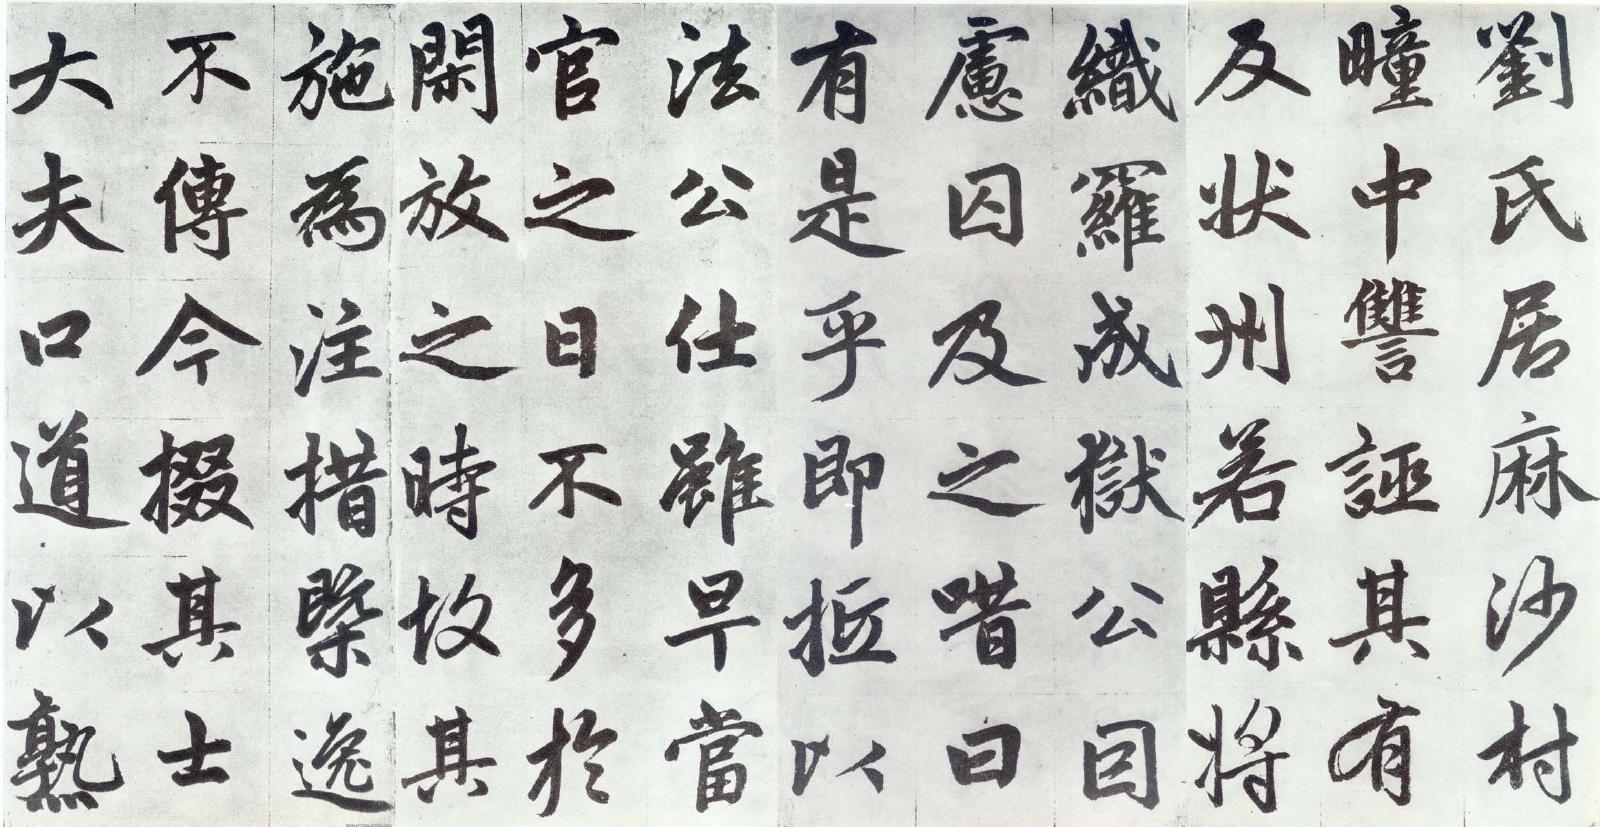 劉氏居麻沙村
疃中讐誣其有
反狀州若縣將
織羅成獄公因
慮囚及之唶曰
有是乎即抵以
法公仕雖早當
官之日不多於
閑放之時故其
施為注措槩逸
不傳今掇其士
大夫口道以熟